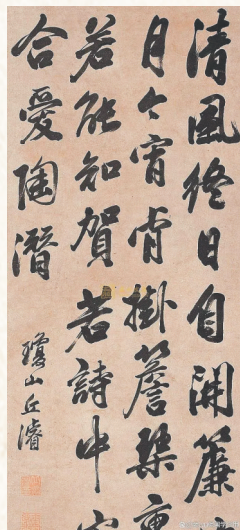 清風終日自開簾
月今宵肯掛簷琴
若能知賀若詩中
合愛陶潛
瓊山丘濬